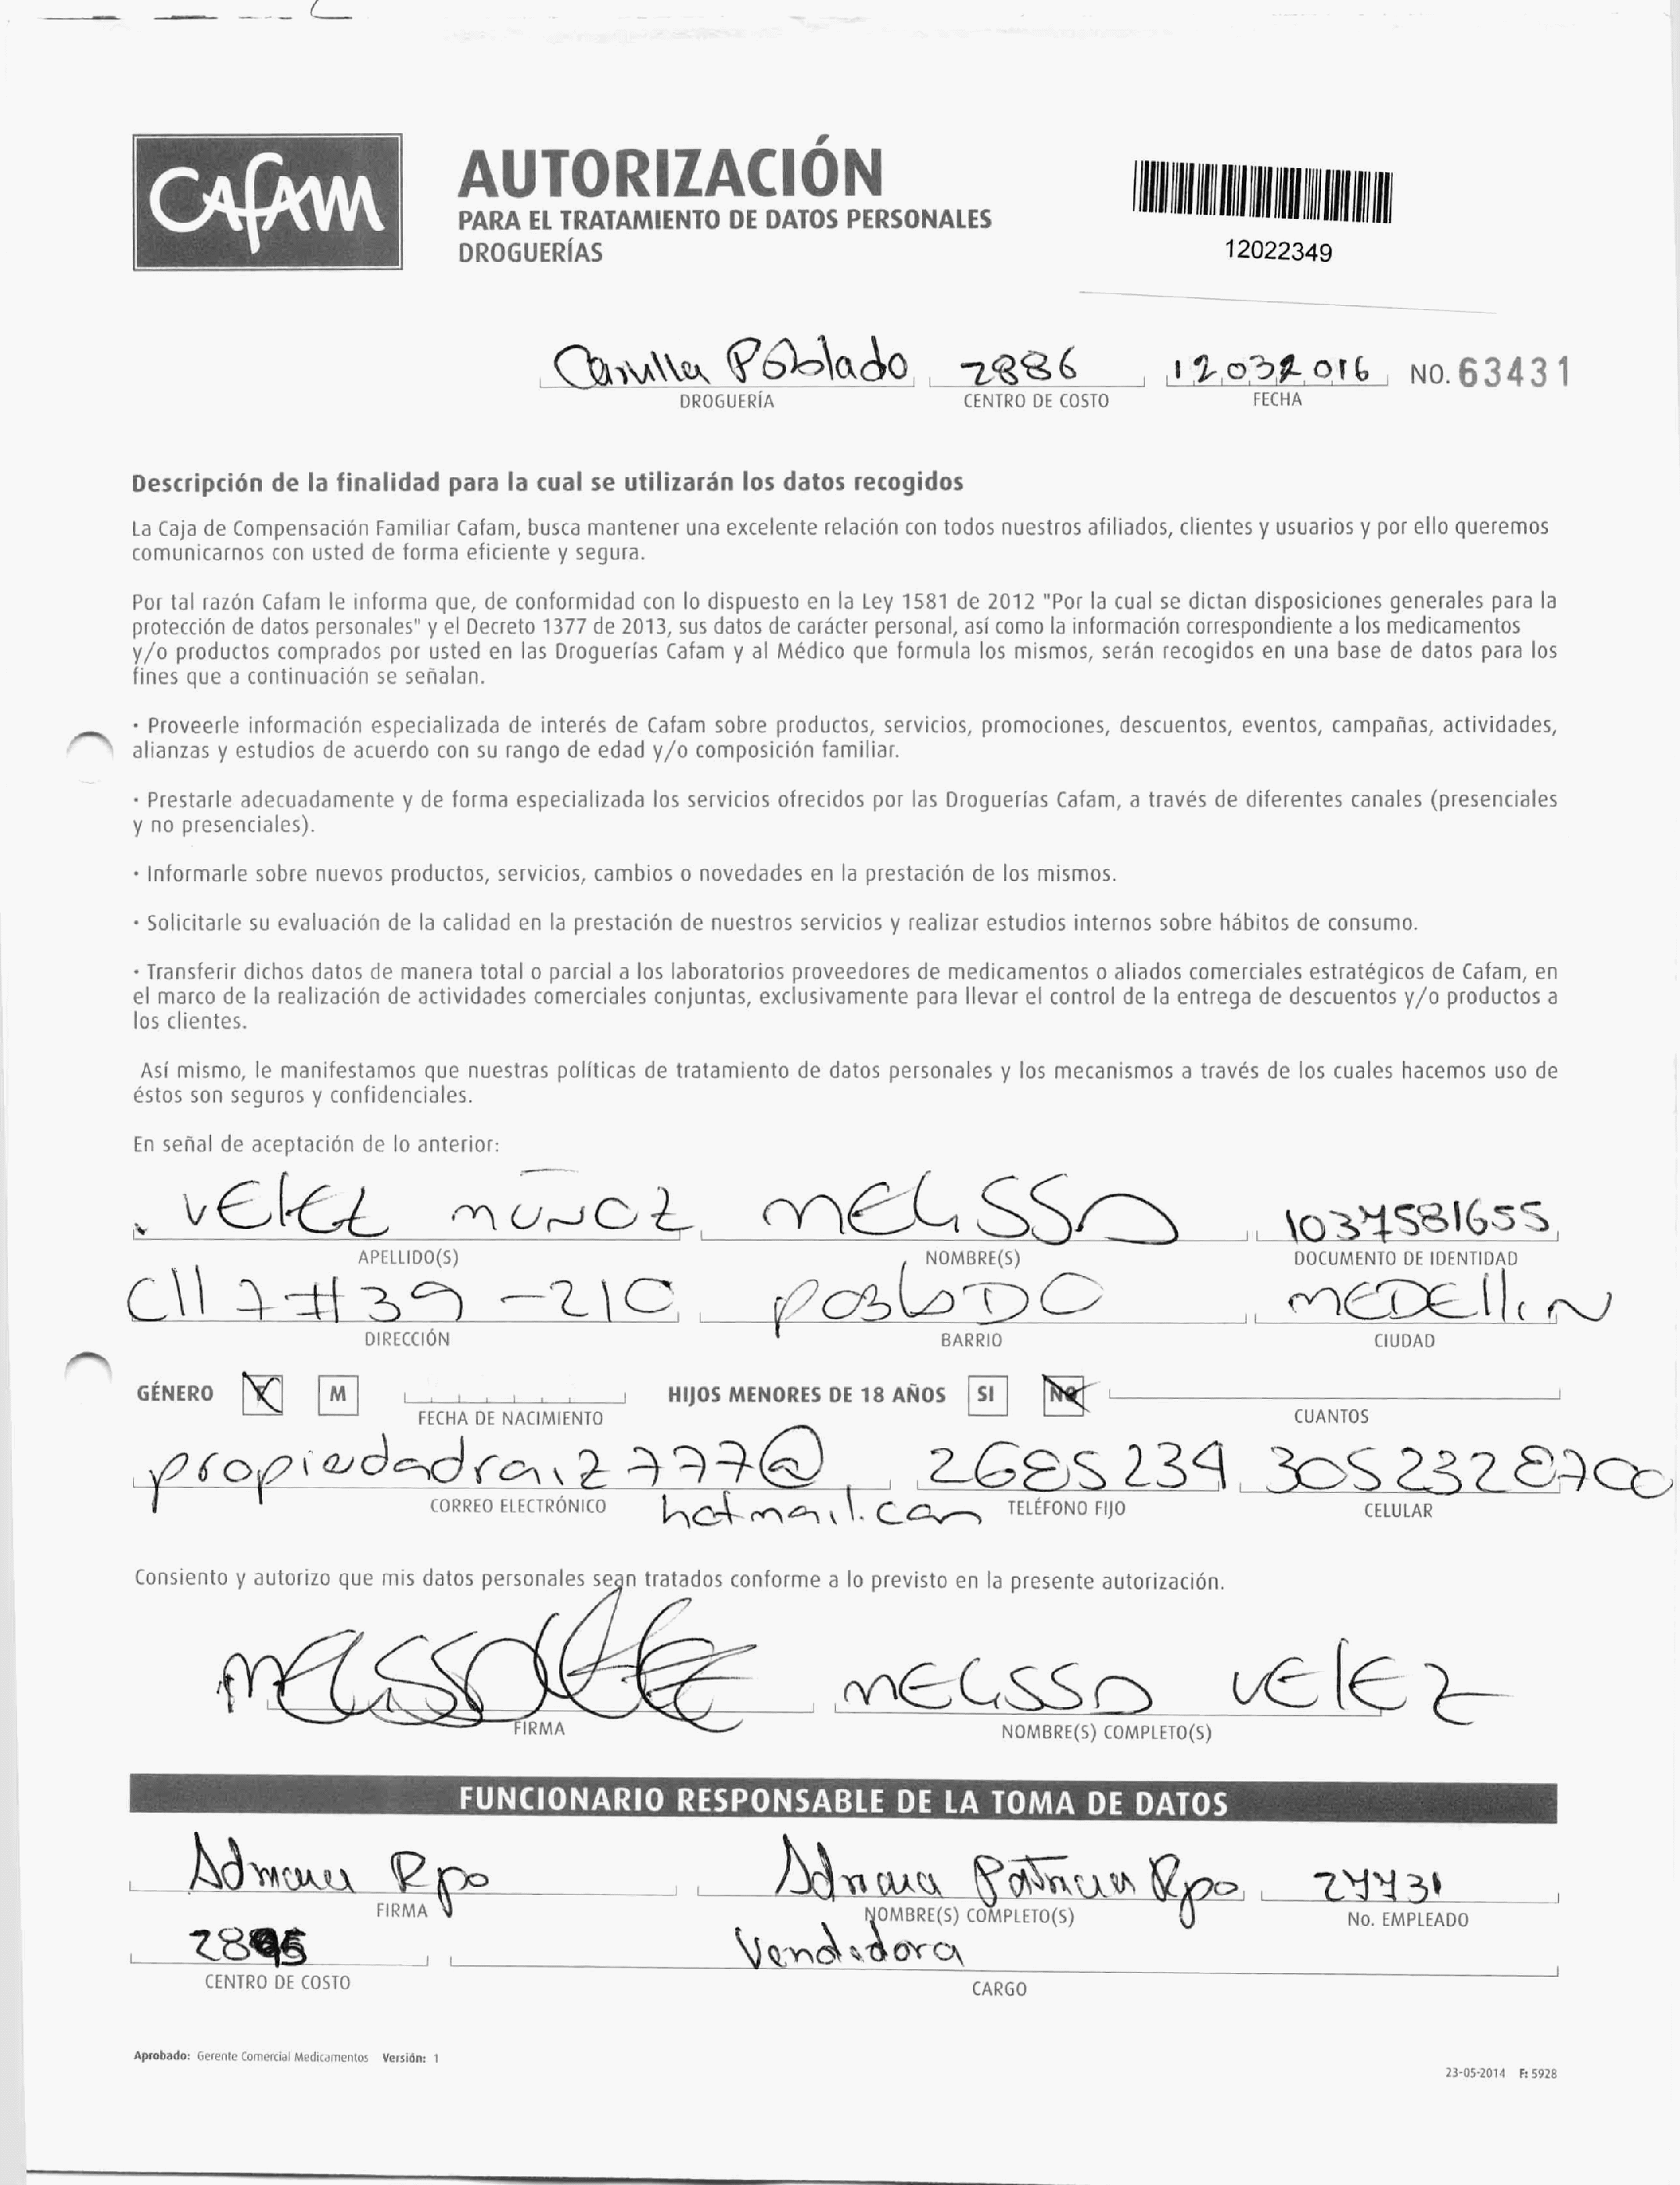 Cafam
AUTORIZACIÓN
PARA EL TRATAMIENTO DE DATOS PERSONALES
DROGUERÍAS
12022349
Poblado 2886 12032016 NO. 63431
DROGUERÍA CENTRO DE COSTO FECHA
Descripción de la finalidad para la cual se utilizarán los datos recogidos
La Caja de Compensación Familiar Cafam, busca mantener una excelente relación con todos nuestros afiliados, clientes y usuarios y por ello queremos
comunicarnos con usted de forma eficiente y segura.
Por tal razón Cafam le informa que, de conformidad con lo dispuesto en la Ley 1581 de 2012 "Por la cual se dictan disposiciones generales para la
protección de datos personales" y el Decreto 1377 de 2013, sus datos de carácter personal, así como la información correspondiente a los medicamentos
y/o productos comprados por usted en las Droguerías Cafam y al Médico que formula los mismos, serán recogidos en una base de datos para los
fines que a continuación se señalan.
· Proveerle información especializada de interés de Cafam sobre productos, servicios, promociones, descuentos, eventos, campañas, actividades,
alianzas y estudios de acuerdo con su rango de edad y/o composición familiar.
· Prestarle adecuadamente y de forma especializada los servicios ofrecidos por las Droguerías Cafam, a través de diferentes canales (presenciales
y no presenciales).
· Informarle sobre nuevos productos, servicios, cambios o novedades en la prestación de los mismos.
· Solicitarle su evaluación de la calidad en la prestación de nuestros servicios y realizar estudios internos sobre hábitos de consumo.
· Transferir dichos datos de manera total o parcial a los laboratorios proveedores de medicamentos o aliados comerciales estratégicos de Cafam, en
el marco de la realización de actividades comerciales conjuntas, exclusivamente para llevar el control de la entrega de descuentos y/o productos a
los clientes.
Así mismo, le manifestamos que nuestras políticas de tratamiento de datos personales y los mecanismos a través de los cuales hacemos uso de
éstos son seguros y confidenciales.
En señal de aceptación de lo anterior:
VElEZ MUÑOZ MELISSA 1037581655
APELLIDO(S) NOMBRE(S) DOCUMENTO DE IDENTIDAD
Cll 7 # 39 - 210 POBLADO MEDEllIN
DIRECCIÓN BARRIO CIUDAD
GÉNERO M HIJOS MENORES DE 18 AÑOS SI NO
FECHA DE NACIMIENTO CUANTOS
propiedadraiz777@ 2685234 3052328700
CORREO ELECTRÓNICO hotmail.com TELÉFONO FIJO CELULAR
Consiento y autorizo que mis datos personales sean tratados conforme a lo previsto en la presente autorización.
MELISSA VElEZ
FIRMA NOMBRE(S) COMPLETO(S)
FUNCIONARIO RESPONSABLE DE LA TOMA DE DATOS
Adriana Rpo Adriana Patricia Rpo 27431
FIRMA NOMBRE(S) COMPLETO(S) No. EMPLEADO
Vendedora
CENTRO DE COSTO CARGO
Aprobado: Gerente Comercial Medicamentos Versión: 1
23-05-2014 F: 5928